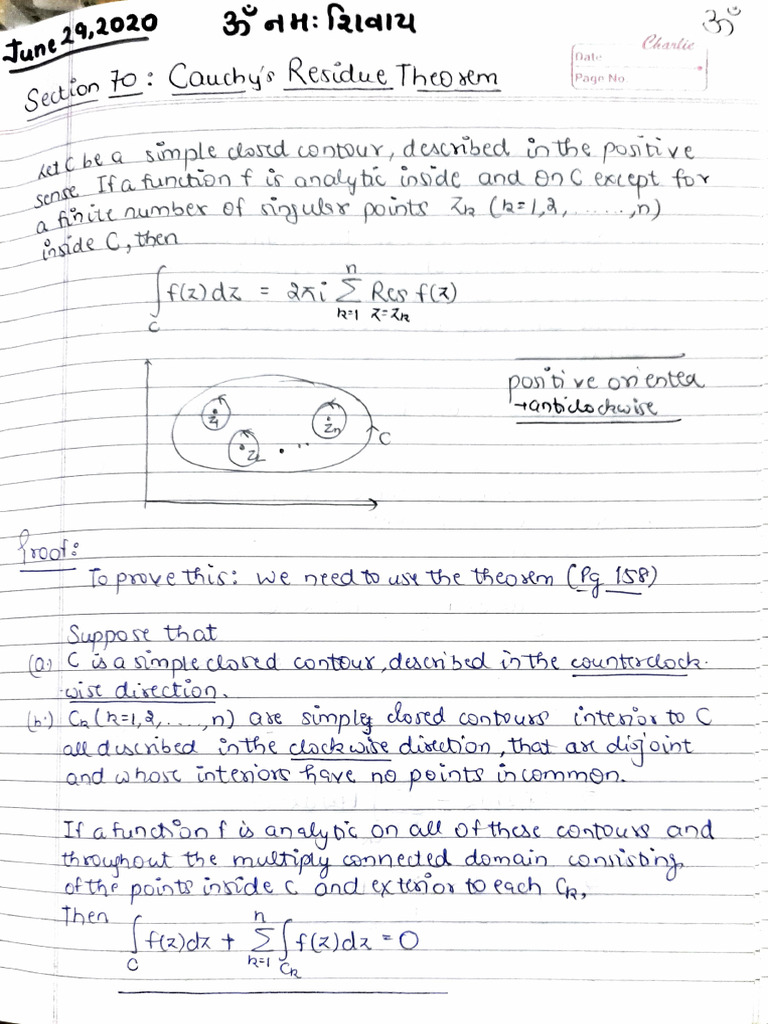 June 29, 2020
ૐ નમઃ શિવાય
ૐ
Charlie
Date
Page No.
Section 70: Cauchy's Residue Theorem
Let C be a simple closed contour, described in the positive
sense. If a function f is analytic inside and on C except for
a finite number of singular points zk (k=1,2,......,n)
inside C, then
∫C f(z)dz = 2πi Σ(k=1 to n) Res z=zk f(z)
positive oriented
→anticlockwise
z1 z2 zn C
Proof:
To prove this: we need to use the theorem (Pg 158)
Suppose that
(a.) C is a simple closed contour, described in the counterclock-
wise direction.
(b.) Ck (k=1,2,....,n) are simple closed contours interior to C
all described in the clockwise direction, that are disjoint
and whose interiors have no points in common.
If a function f is analytic on all of these contours and
throughout the multiply connected domain consisting
of the points inside C and exterior to each Ck,
Then
∫C f(z)dz + Σ(k=1 to n) ∫Ck f(z)dz = 0